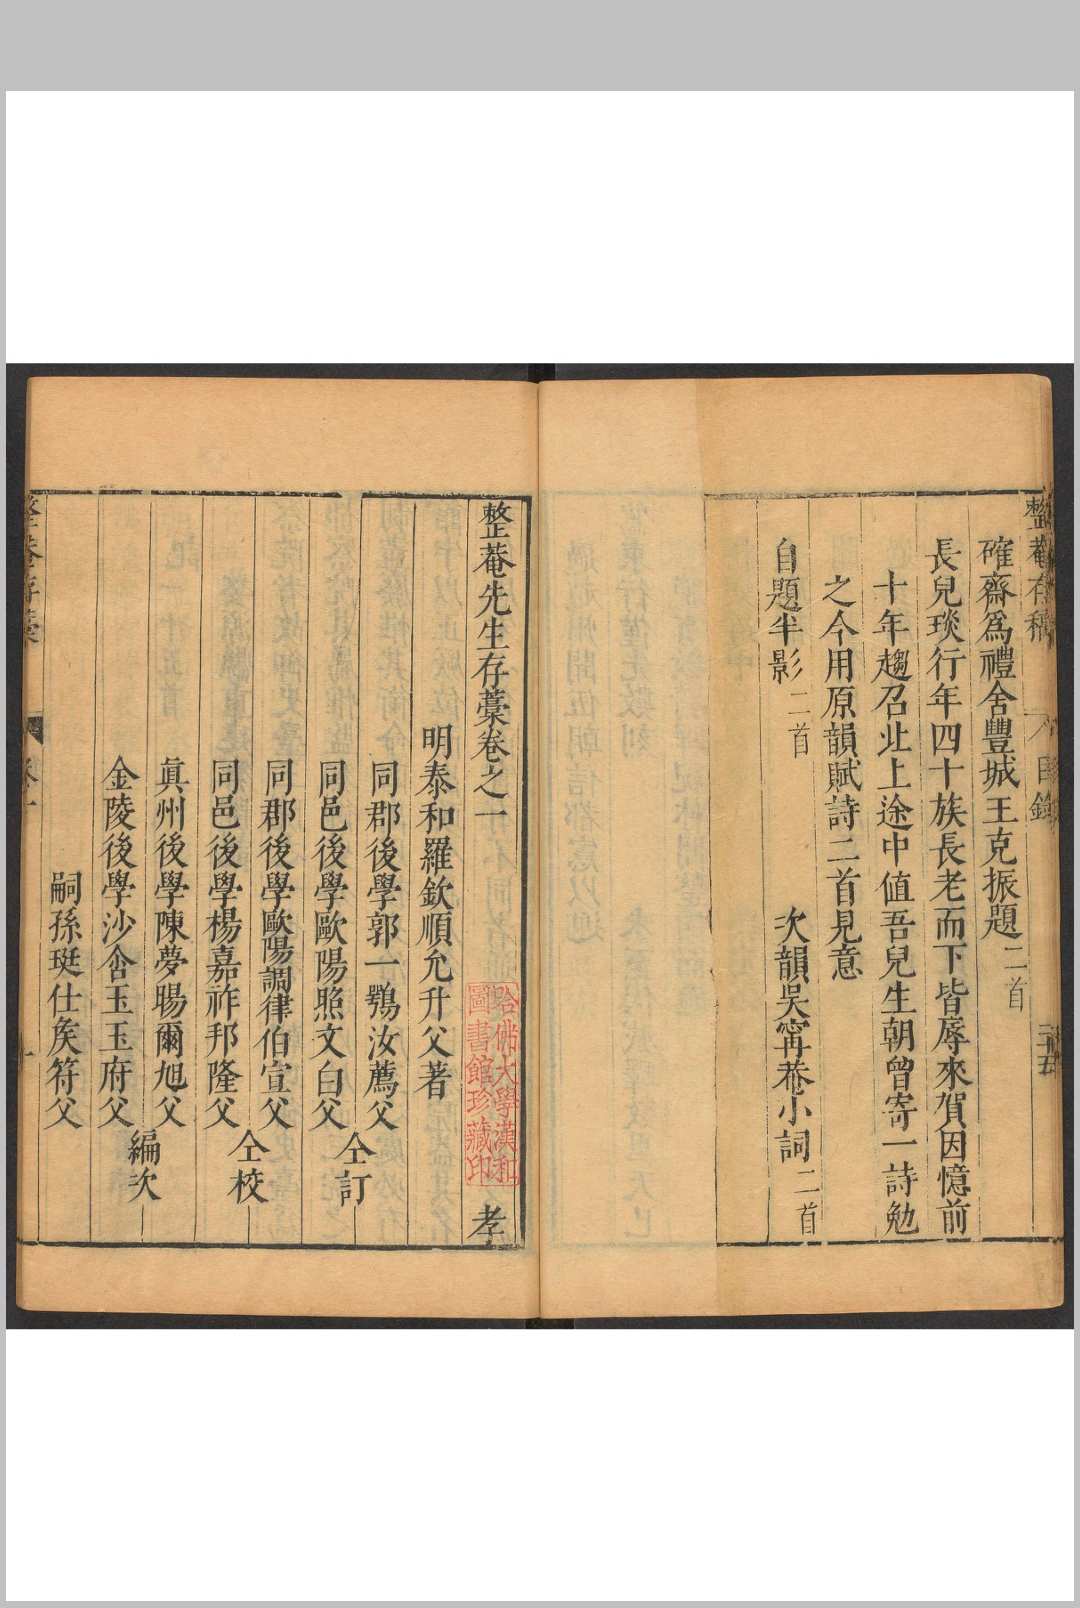 整菴存稿
目錄
三十五
確齋爲禮舍豐城王克振題二首
長兒琰行年四十族長老而下皆辱來賀因憶前
十年趨召北上途中値吾兒生朝曾寄一詩勉
之今用原韻賦詩二首見意
自題半影二首
次韻吳甯菴小詞二首
整菴先生存藁卷之一
孝
哈佛大學漢和
圖書館珍藏印
明泰和羅欽順允升父著
同郡後學郭一鶚汝薦父
同邑後學歐陽照文白父
仝訂
同郡後學歐陽調律伯宣父
同邑後學楊嘉祚邦隆父
仝校
眞州後學陳夢暘爾旭父
金陵後學沙舍玉玉府父
編次
嗣孫珽仕矦符父
整菴存藁
卷一
一